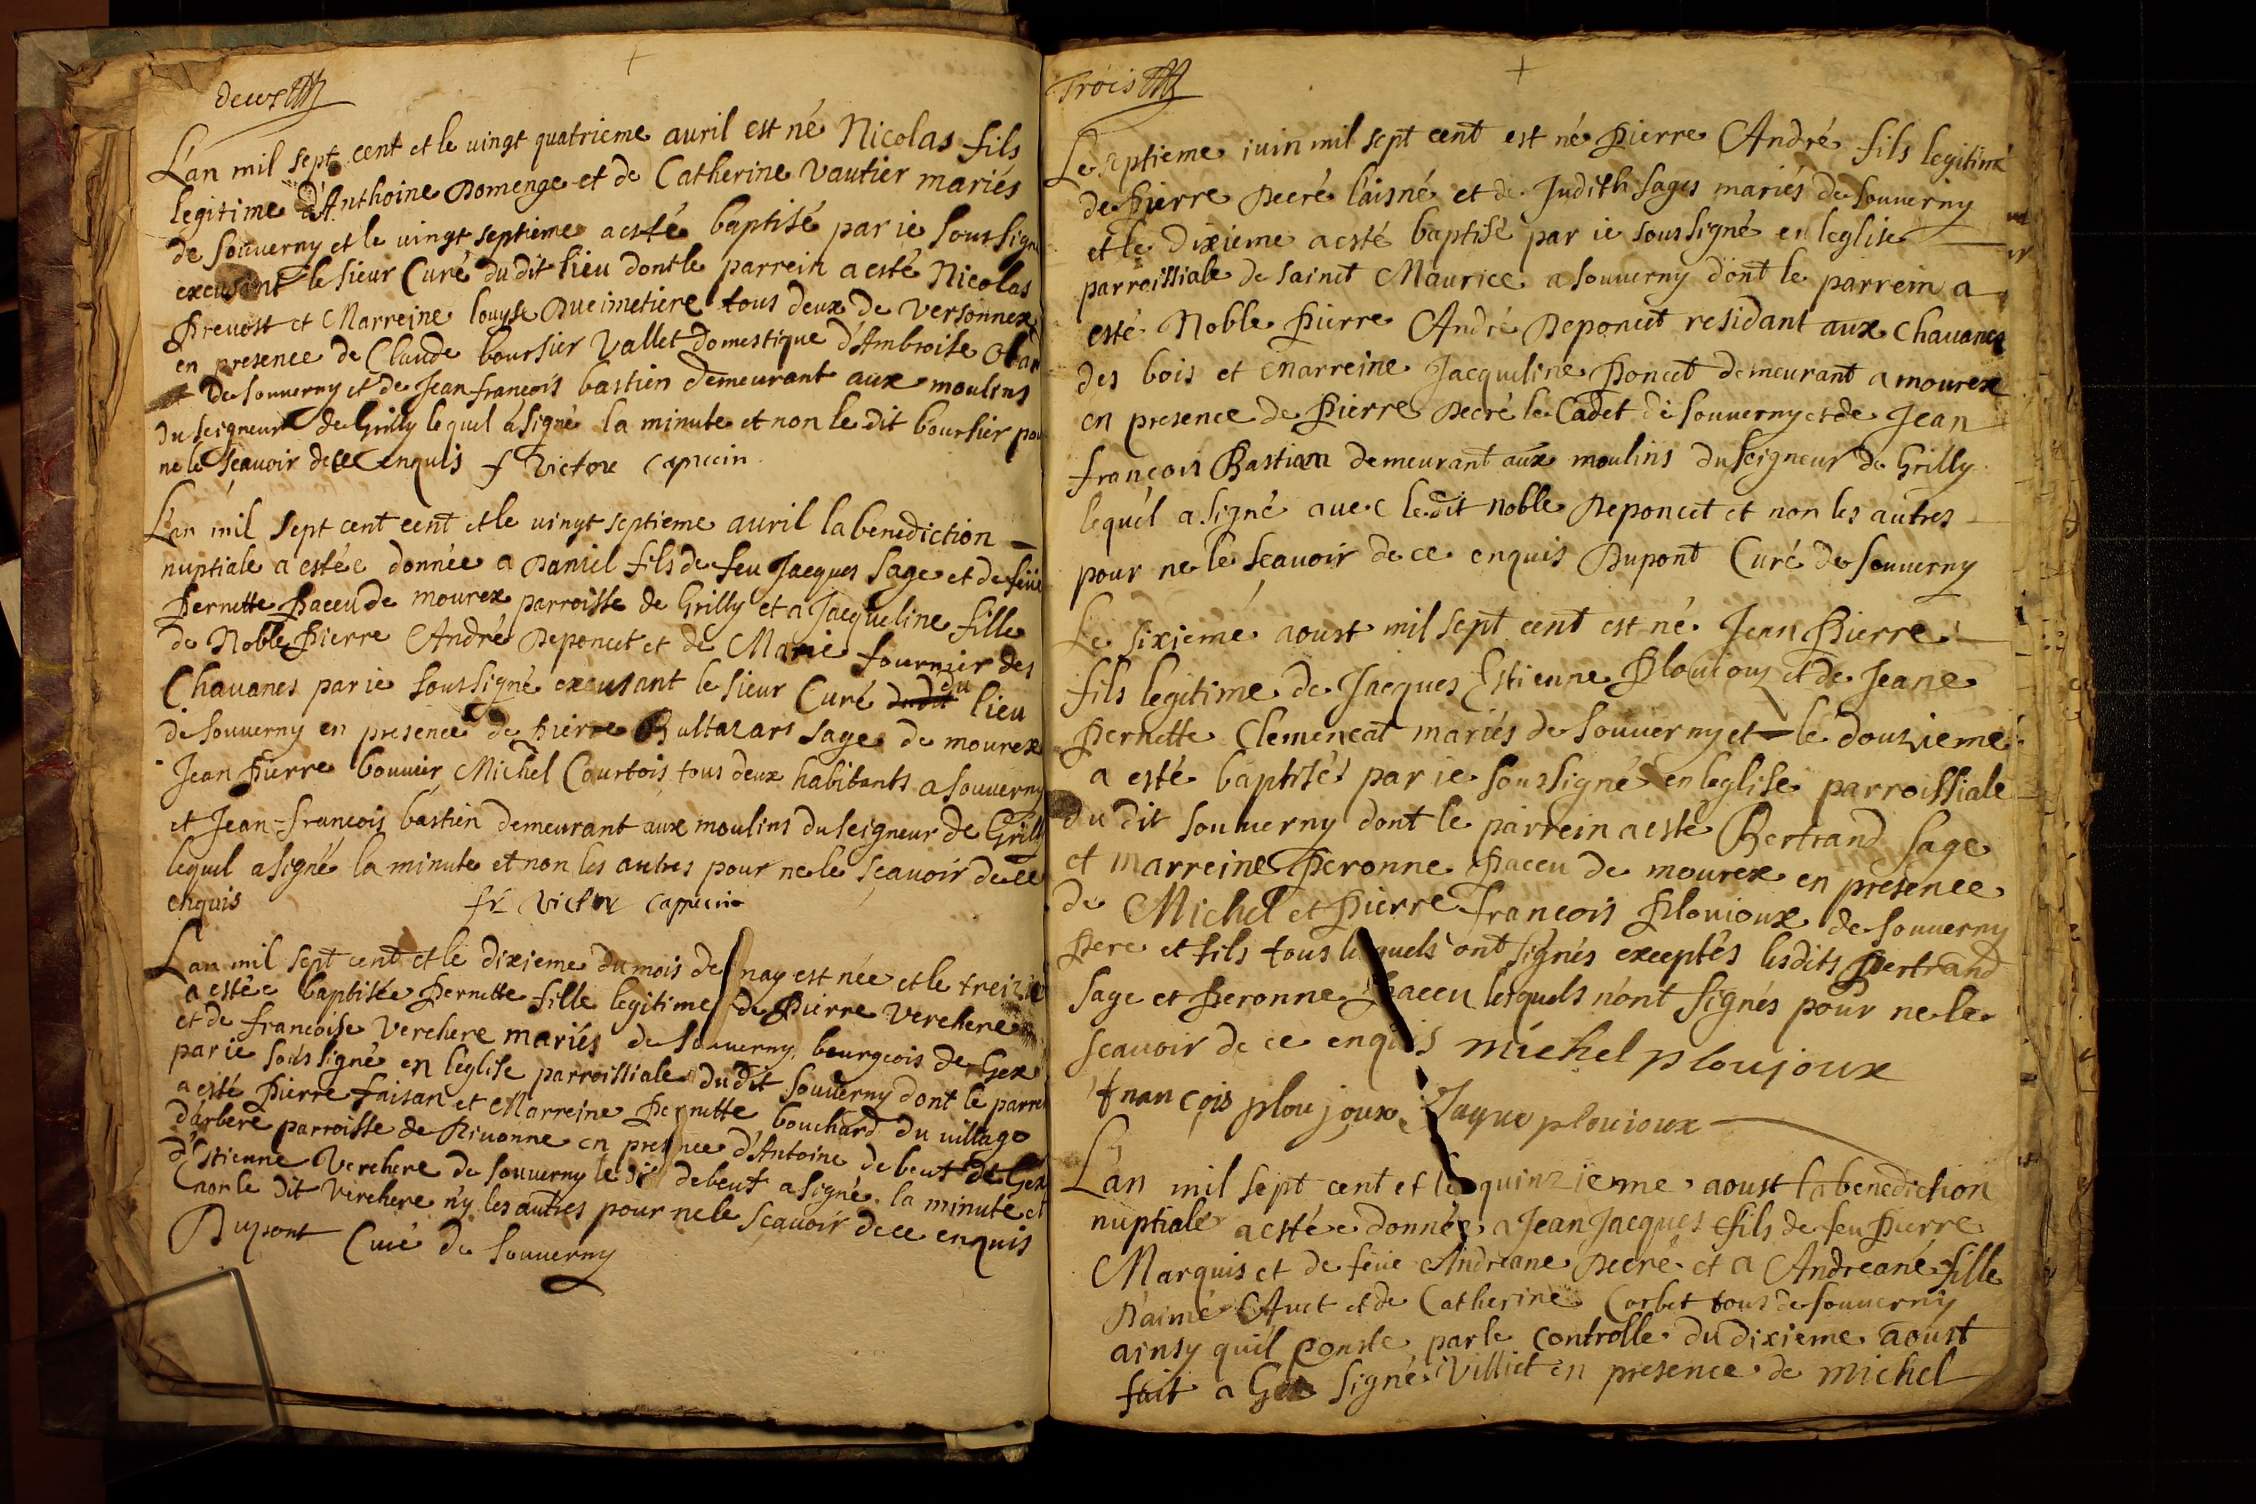 deux
L'an mil sept cent et le uingt quatrieme auril est né Nicolas fils
legitime d'Anthoine Domenge et de Catherine Vautier mariés
de souuerny et le uingt septieme a esté baptisé par ie soussigné
excusant le sieur Curé du dit lieu dont le parrein a esté Nicolas
Preuost et Marreine louyse Dueimetiere tous deux de Versonnex
en presence de Claude boursier Vallet domestique d'Ambroise
de souuerny et de Jean francois bastien demeurant aux moulins
du seigneur de Grilly lequel a signé la minute et non le dit boursier pour
ne le sçauoir de ce enquis f Victor capucin
L'an mil sept cent cent et le uingt septieme auril la benediction
nuptiale a estée donnée a Daniel fils de feu Jacques Sage et de feüe
Pernette Paccu de mourex parroisse de Grilly et a Jacqueline fille
de Noble Pierre André Deponcet et de Marie fournier des
Chauanes par ie soussigné excusant le sieur Curé dudit du lieu
de souuerny en presence de Pierre Baltazart sage de mourex
Jean Pierre bouuier Michel Courtois tous deux habitants a souuerny
et Jean-francois bastien demeurant aux moulins du seigneur de Grilly
lequel a signé la minute et non les autres pour ne le sçauoir de ce
enquis fr Victor capucin
L'an mil sept cent et le dixieme du mois de may est née et le treizie
a estée baptisée Pernette fille legitime de Pierre Verchere
et de francoise Verchere mariés de souuerny bourgeois de Gex
par ie soussigné en l'eglise parroissiale du dit souuerny dont le parrein
a esté Pierre faisan et Marreine Pernette bouchard du uillage
d'arbere parroisse de Diuonne en presence d'Antoine debeut de Gex
d'Estienne Verchere de souuerny le dit debeut a signé la minute et
non le dit Verchere n'y les autres pour ne le sçauoir de ce enquis
Dupont Curé de Souuerny
Trois
Le septieme iuin mil sept cent est né Pierre André fils legitime
de Pierre Decré l'aisné et de Judith Sages mariés de souuerny
et le dixieme a esté baptisé par ie soussigné en leglise
parroissiale de sainct Maurice a souuerny dont le parrein a
esté Noble Pierre André Deponcet residant aux Chauanes
des bois et marreine Jacqueline Poncet demeurant a mourex
en presence de Pierre Decré le Cadet de souuerny et de Jean
françois Bastian demeurant aux moulins du seigneur de Grilly
lequel a signé auec le dit noble Deponcet et non les autres
pour ne le sçauoir de ce enquis Dupont Curé de souuerny
Le sixieme aoust mil sept cent est né Jean Pierre
fils legitime de Jacques Estienne Plouioux et de Jeane
Pernette Clemencat mariés de souuerny et le douzieme
a esté baptisé par ie soussigné en leglise parroissiale
du dit souuerny dont le parrein a esté Bertrand Sage
et marreine Peronne Paccu de mourex en presence
de Michel et Pierre francois Plouioux de souuerny
Pere et fils tous lesquels ont signés exceptés lesdits Bertrand
Sage et Peronne Paccu lesquels n'ont signés pour ne le
scauoir de ce enquis michel ploujoux
francois ploujoux Jaque plouioux
L'an mil sept cent et le quinzieme aoust la benediction
nuptiale a estée donnée a Jean Jacques fils de feu Pierre
Marquis et de feüe Andreane Decré et a Andreane fille
D'aimé Auet et de Catherine Corbet tous de souuerny
ainsy quil conste par le controlle du dixieme aoust
fait a Gex signé Villiet en presence de michel